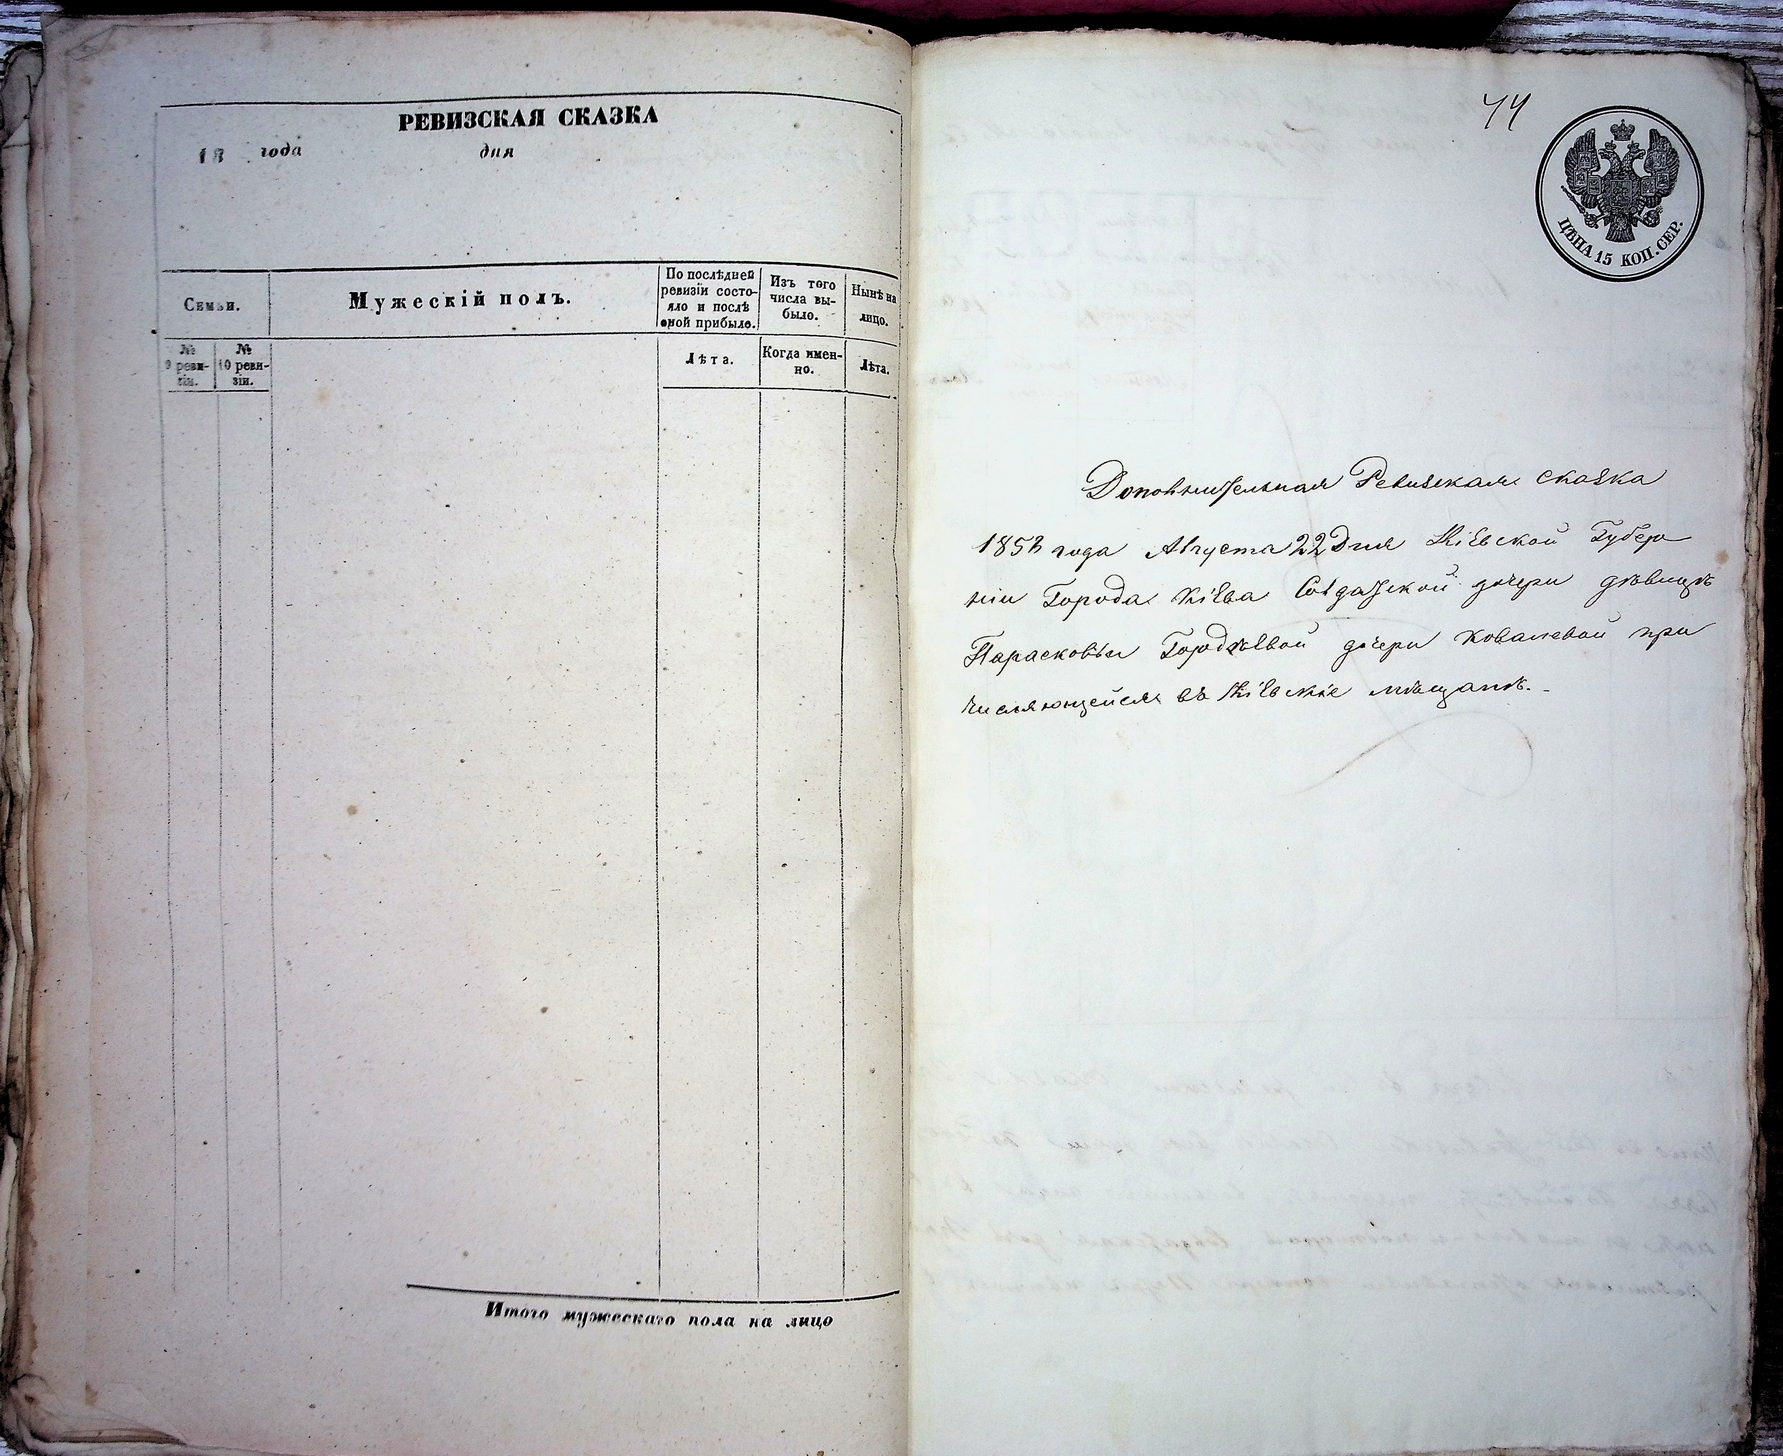 РЕВИЗСКАЯ СКАЗКА
18 года дня
Семьи.
Мужескій полъ.
По послѣдней
ревизіи состо-
яло и послѣ
оной прибыло.
Изъ того
числа вы-
было.
Нынѣ на
лицо.
№
9 реви-
зіи.
№
10 реви-
зіи.
Лѣта.
Когда имен-
но.
Лѣта.
Итого мужескаго пола на лицо
44
ЦѢНА 15 КОП. СЕР.
Дополнительная Ревизская сказка
1858 года Августа 22 Дня Кіевской Губер
ніи Города Кіева Солдатской дочери дѣвицѣ
Парасковьи Гордѣевой дочери Ковалевой при
числяющейся въ Кіевскіе мѣщане.-